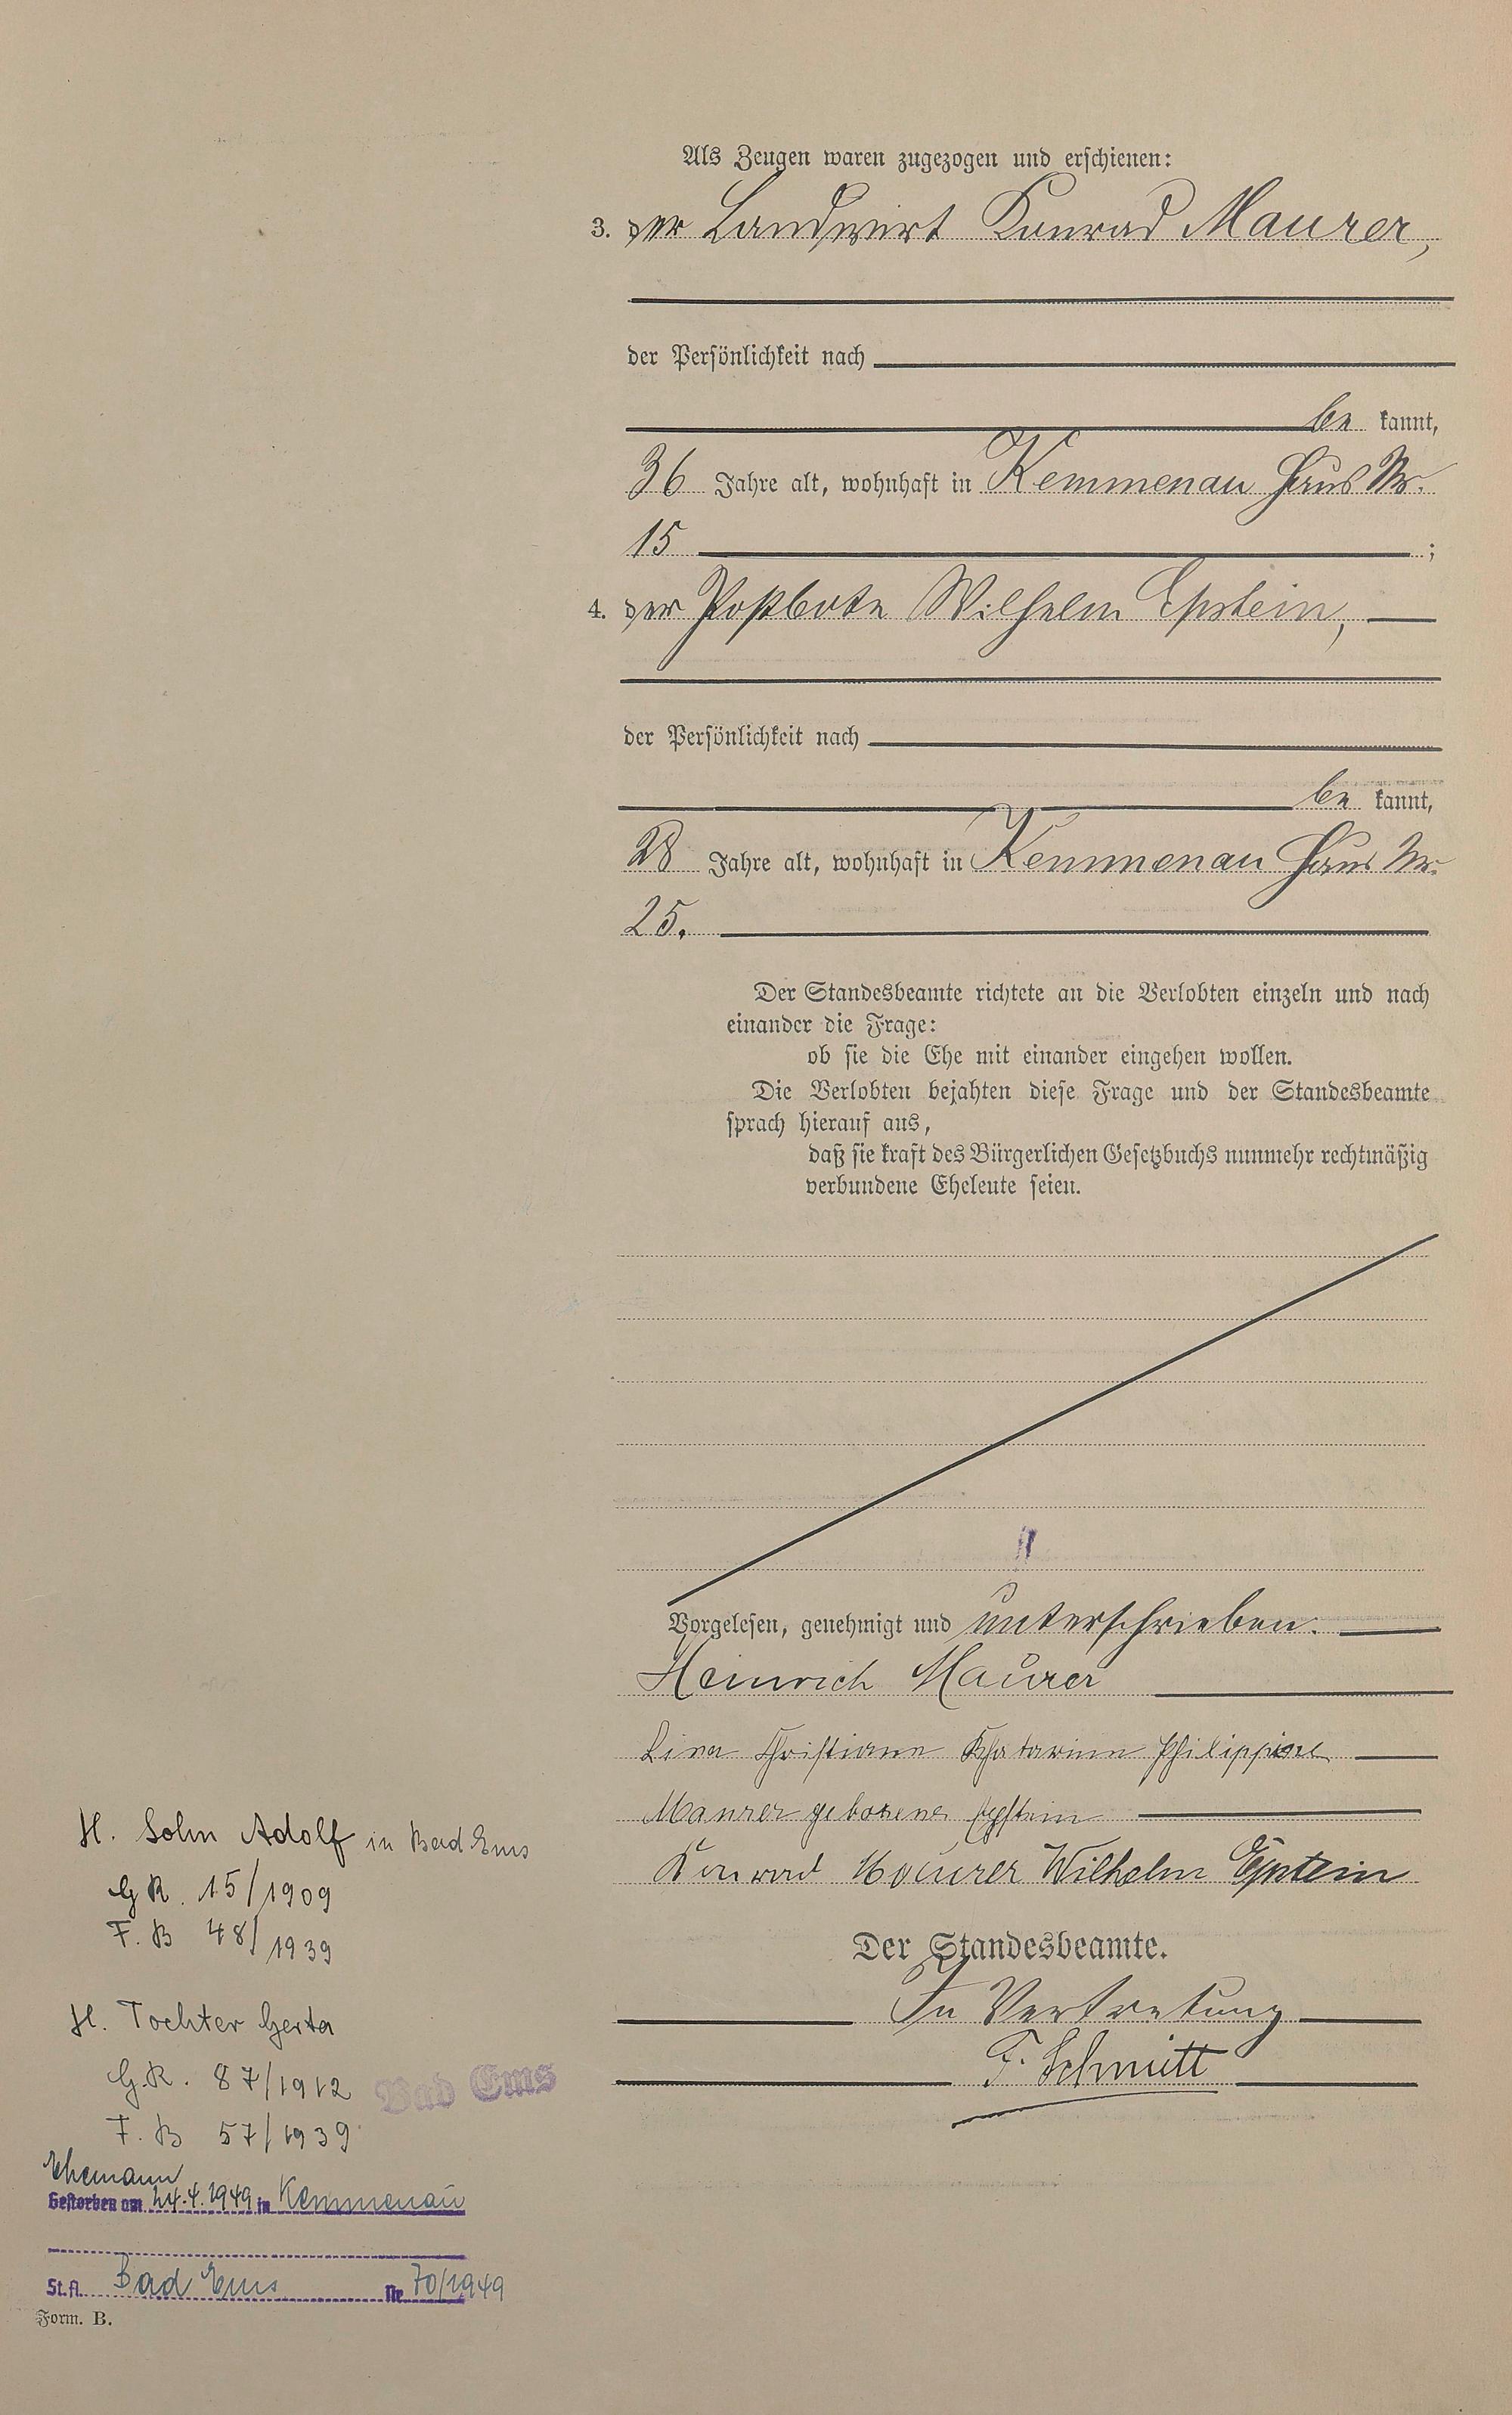 Als Zeugen waren zugezogen und erschienen:
3. der Landwirt Konrad Maurer,
der Persönlichkeit nach
be kannt,
36 Jahre alt, wohnhaft in Kemmenau Haus Nr.
15 ;
4. der Postbote Wilhelm Epstein,
der Persönlichkeit nach
be kannt,
28 Jahre alt, wohnhaft in Kemmenau Haus Nr.
25.
Der Standesbeamte richtete an die Verlobten einzeln und nach
einander die Frage:
ob sie die Ehe mit einander eingehen wollen.
Die Verlobten bejahten diese Frage und der Standesbeamte
sprach hierauf aus,
daß sie kraft des Bürgerlichen Gesetzbuchs nunmehr rechtmäßig
verbundene Eheleute seien.
Vorgelesen, genehmigt und unterschrieben.
Heinrich Maurer
Lina Christiane Khatarine Philippine
Maurer geborene Epstein
Konrad Maurer Wilhelm Epstein
Der Standesbeamte.
In Vertretung
F. Schmitt
H. Sohn Adolf in Bad Ems
G R. 15/1909
F. B 48/1939
H. Tochter Gerta
G.R. 87/1912
F. B 57/1939
Bad Ems
Ehemann
Gestorben am 24.4.1949 in Kemmenau
St.A. Bad Ems Nr 70/1949
Form. B.